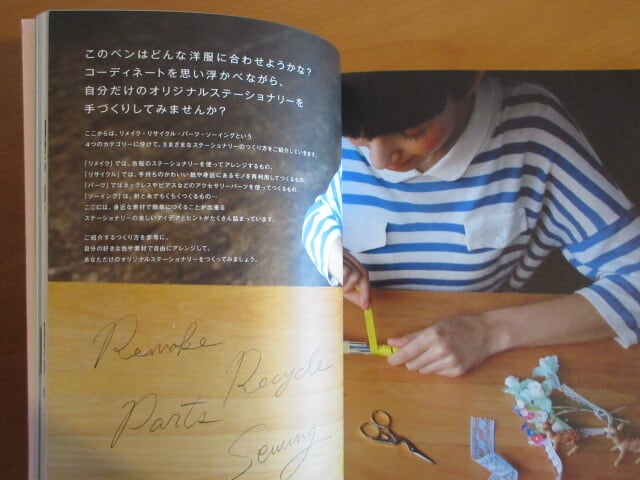 このペンはどんな洋服に合わせようかな?
コーディネートを思い浮かべながら、
自分だけのオリジナルステーショナリーを
手づくりしてみませんか?
ここからは、リメイク・リサイクル・パーツ・ソーイングという
4つのカテゴリーに分けて、さまざまなステーショナリーのつくり方をご紹介していきます。
「リメイク」では、市販のステーショナリーを使ってアレンジするもの、
「リサイクル」では、手持ちのかわいい紙や身近にあるモノを再利用してつくるもの、
「パーツ」ではネックレスやピアスなどのアクセサリーパーツを使ってつくるもの、
「ソーイング」は、針と糸でちくちくつくるもの…
ここには、身近な素材で簡単につくることが出来る
ステーショナリーの楽しいアイデアとヒントがたくさん詰まっています。
ご紹介するつくり方を参考に、
自分の好きな色や素材で自由にアレンジして、
あなただけのオリジナルステーショナリーをつくってみましょう。
Remake
Recycle
Parts
Sewing